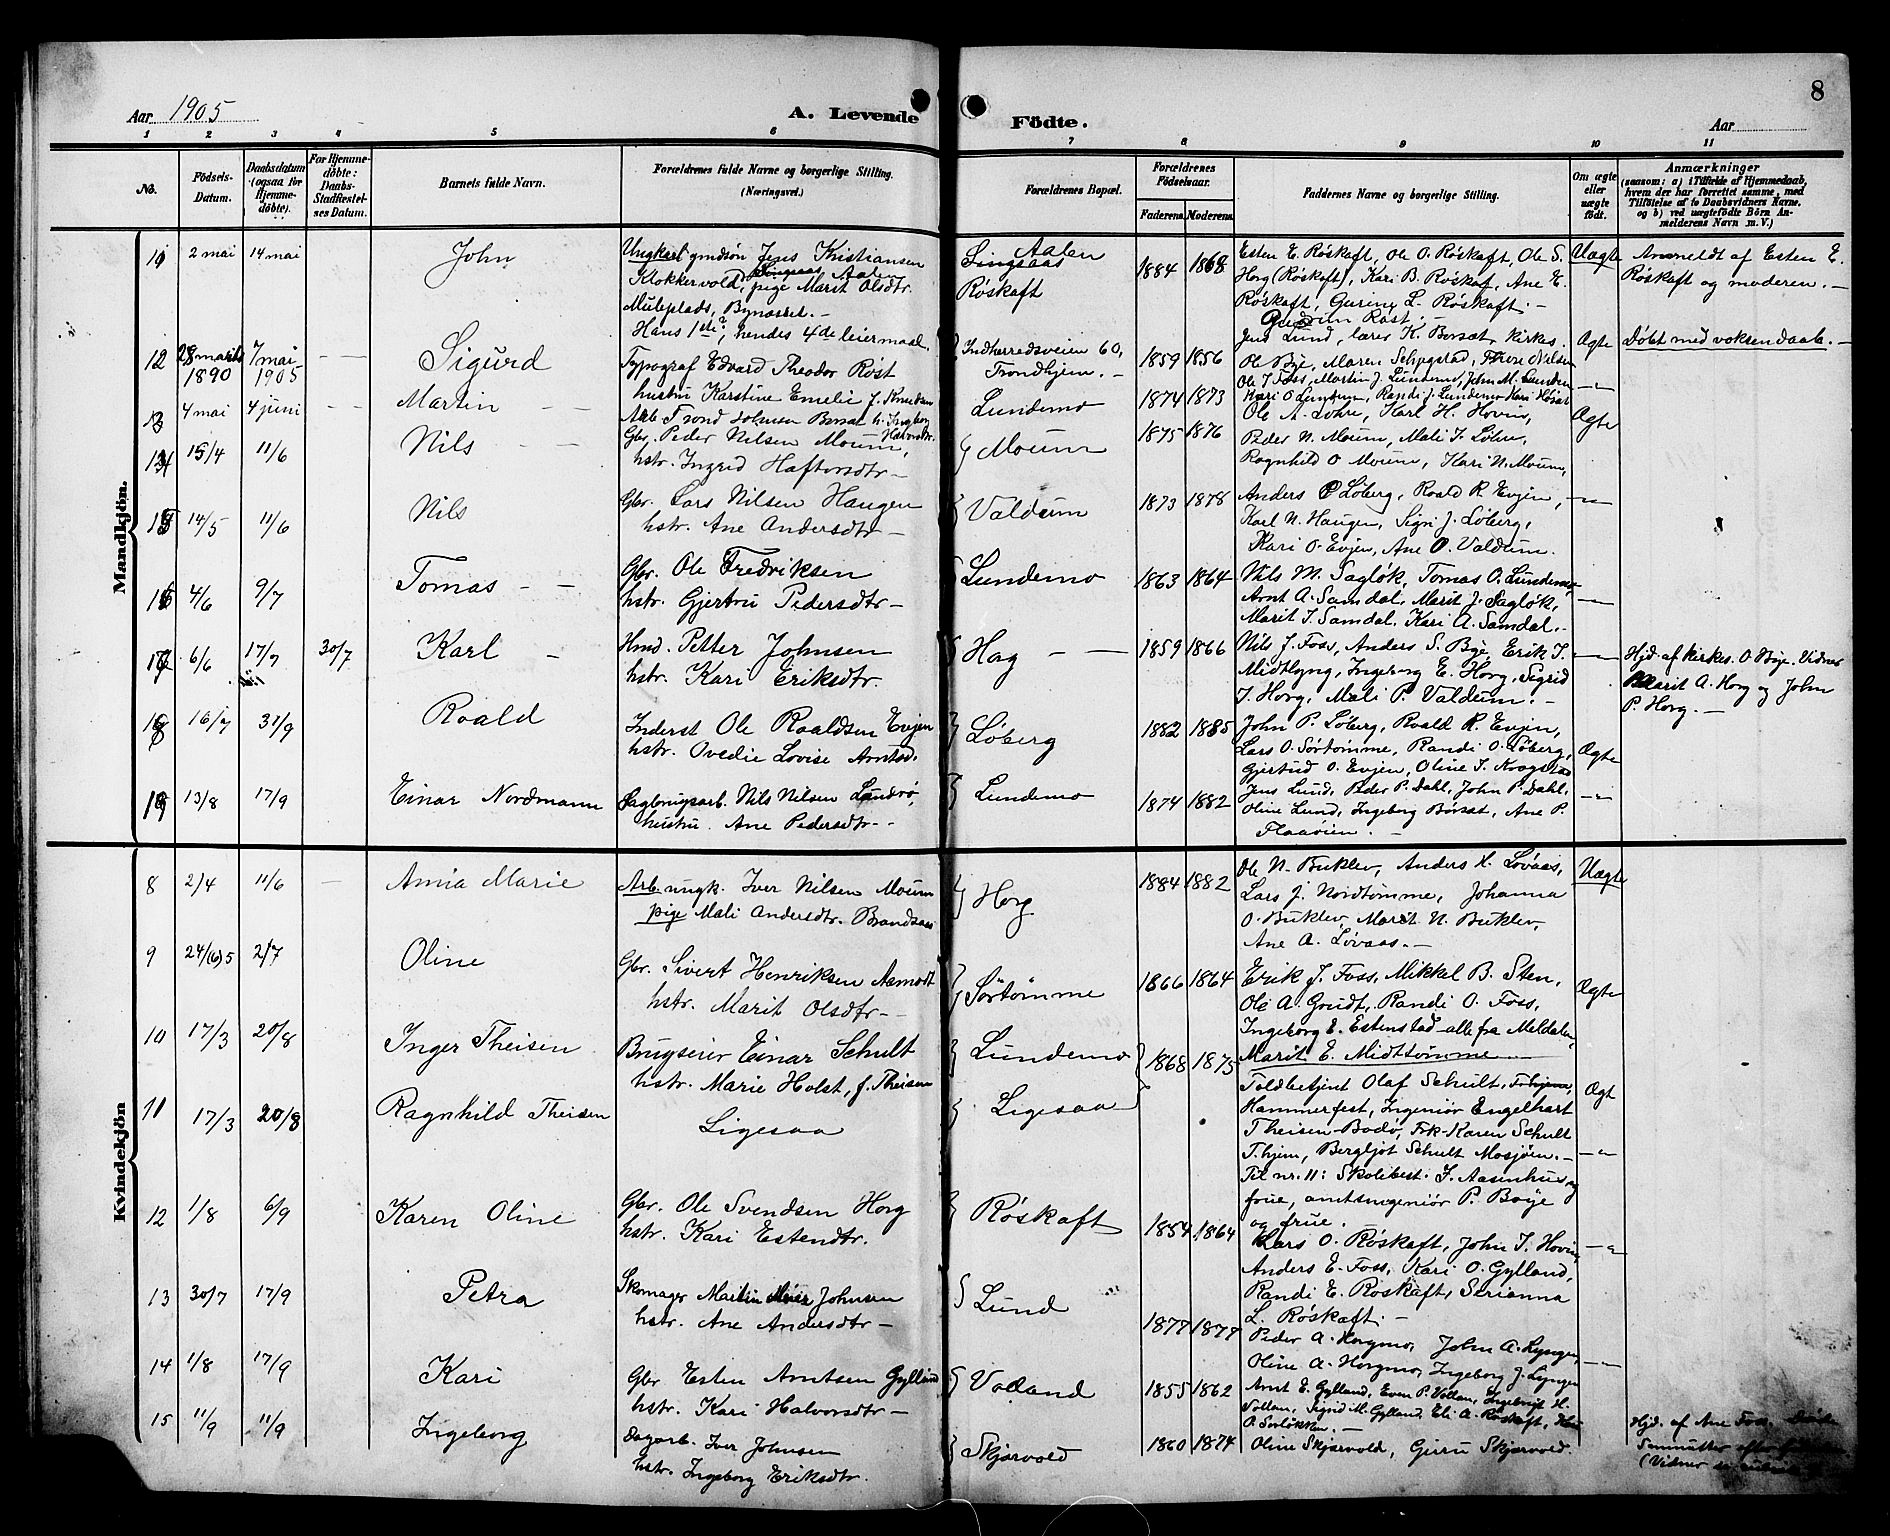 8
Aar 1905
A. Levende
Födte.
Aar
1 2 3 4 5 6 7 8 9 10 11
No.
Födsels-Datum.
Daabsdatum (ogsaa for Hjemme-döbte).
For Hjemme-döbte: Daabs-Stadfæstel-ses Datum.
Barnets fulde Navn.
Forældrenes fulde Navne og borgerlige Stilling. (Næringsvei.)
Forældrenes Bopæl.
Forældrenes Födselsaar.
Faderens. Moderens.
Faddernes Navne og borgerlige Stilling.
Om ægte eller uægte födt.
Anmærkninger
(saasom: a) i Tilfælde af Hjemmedaab, hvem der har forrettet samme, med Tilföielse af to Daabsvidners Navne, og b) ved uægtefödte Börn An-melderens Navn m. V.)
Mandkjön.
11 2 mai 14 mai John
Ungkarl gmdsön Jens Kristiansen
Klokkervold, Singsaas Aalen, pige Marit Olsdtr.
Muleplads, Bynesset. —
Hans 1ste, hendes 4de leiermaal.
Singsaas Aalen
Röskaft
1884 1868
Esten E. Röskaft, Ole O. Röskaft, Ole S.
Horg (Röskaft), Kari B. Röskaf, Ane E.
Röskaft, Gurine L. Röskaft. —
Uægte
Anmeldt af Esten E.
Röskaft og moderen. —
12 28 marts 1890 7 mai 1905 — — Sigurd
Typograf Edvard Theodor Röst
hustru Karstine Emelie f. Knudsen
Indherredsveien 60,
Trondhjem. —
1859 1856
Gudrun Röst. —
Jens Lund, lærer K. Borsæt, kirkes.
Ole Böye, Maren Schjegstad, Thrine Nilsen
Ægte
Döbt med voksendaab. —
13 4 mai 4 juni — — Martin — —
Arb. Trond Johnsen Borsæt h. Ingborg Halvorsdtr.
Lundemo
1874 1873
Ole T. Foss, Martin J. Lundemo, John M. Lundemo
Kari O. Lundemo, Randi J. Lundemo, Kari Horsæt
—"—
14 15/4 11/6 Nils — —
Gbr. Peder Nilsen Moum,
hstr. Ingrid Haftorsdtr —
Moum
1875 1876
Ole A. Lohre, Karl H. Hovin,
Peder N. Moum, Mali J. Löhre,
Ragnhild O. Moum, Kari N. Moum,
Ægte
15 14/5 11/6 Nils
Gbr. Lars Nilsen Haugen
hstr. Ane Andersdtr —
Valdum
1873 1878
Anders P. Löberg, Roald R. Evjen,
Karl N. Haugen, Sigri J. Löberg,
Kari O. Evjen, Ane O. Valdum.
—"—
16 4/6 9/7 Tomas — —
Gbr. Ole Fredriksen
hstr. Gjertru Pedersdtr —
Lundemo
1863 1864
Nils M. Saglök, Tomas O. Lundemo,
Arnt A. Samdal, Marit J. Saglök,
Marit T. Samdal, Kari A. Samdal. —
—"—
17 6/6 17/7 30/7 Karl —
Hmd. Petter Johnsen
hstr. Kari Eriksdtr.
Hog — —
1859 1866
Nils J. Foss, Anders S. Bye, Erik T.
Midtlyng, Ingeborg E. Horg, Sigrid
T. Horg, Mali P. Valdum. —
—"—
Hjd. af kirkes. O. Böye. Vidner
Marit A. Horg og John
P. Horg. —
18 16/7 31/9 Roald
Inderst Ole Roaldsen Evjen
hstr. Ovedie Lovise Arntsd.
Löberg
1882 1885
John P. Löberg, Roald R. Evjen,
Lars O. Sörtömme, Randi O. Löberg,
Gjertrud O. Evjen, Oline T. Krogstad
Ægte
19 13/8 17/9 Einar Nordmann
Sagbrugsarb. Nils Nilsen Lundrö,
hustru. Ane Pedersdtr —
Lundemo
1874 1882
Jens Lund, Peder P. Dahl, John P. Dahl,
Oline Lund, Ingeborg Börsæt, Ane P.
Flaaöien. —
—"—
Kvindekjön
8 2/4 11/6 — Amia Marie
Arb. ungk. Iver Nilsen Moum
pige Mali Andersdtr. Brandsaas
Horg
1884 1882
Ole N. Buklev, Anders H. Lövaas,
Lars J. Nordtömme, Johanna
O. Buklev, Marit N. Buklev,
Ane A. Lövaas. —
Uægte
9 24/(6)5 2/7 Oline
Gbr. Sivert Henriksen Aamodt
hstr. Marit Olsdtr —
Sörtömme
1866 1864
Erik J. Foss, Mikkel B. Sten,
Ole A. Grudt, Randi O. Foss,
Ingeborg E. Estenstad - alle fra Meldalen,
Marit E. Midttömme —
Ægte
10 17/3 20/8 Inger Theisen
Brugseier Einar Schult
hstr. Marie Holst, f. Theisen
Lundemo
1868 1875
Toldbetjent Olaf Schult, Trhjem,
Hammerfest, Ingeniör Engelhart
Theisen - Bodö, Frk. Karen Schult
T.hjem, Bergljot Schult Mosjöen. —
Ægt
11 17/3 20/8 Ragnhild Theisen
Ligesaa
Ligesaa
Til nr. 11: Skolibest. T. Aasenhus og
frue, amtsingeniör P. Böije
og frue.
—"—
12 1/8 6/9 Karen Oline
Gbr. Ole Svendsen Horg
hstr. Kari Estendtr.
Röskaft
1854 1864
Lars O. Röskaft, John T. Hovin,
Anders E. Foss, Kari O. Gylland,
Randi E. Röskaft, Serianna
L. Röskaft. —
—"—
13 30/7 17/9 Petra
Skomager Martin Johnsen
hstr. Ane Andersdtr —
Lund
1877 1877
Peder A. Horgmo, John A. Lyngen,
Oline A. Horgmo, Ingeborg J. Lyngen
—"—
14 1/8 17/9 Kari
Gbr Esten Arntsen Gylland
hstr. Kari Halvorsdtr —
Volland
1855 1862
Arnt E. Gylland, Even P. Vollan, Ingebrigt H.
Vollan, Sigrid M. Gylland, Eli A. Röskaft, Kari
A. Sorlökken. —
15 11/9 11/9 Ingeborg
Dagarb. Iver Johnsen
hstr. Ingeborg Eriksdtr.
Skjærvold
1860 1874
Oline Skjærvold, Guru Skjærvold.
Hjd. af Ane Foss. Döde
Sammætter efter
(Vidner se rubrik